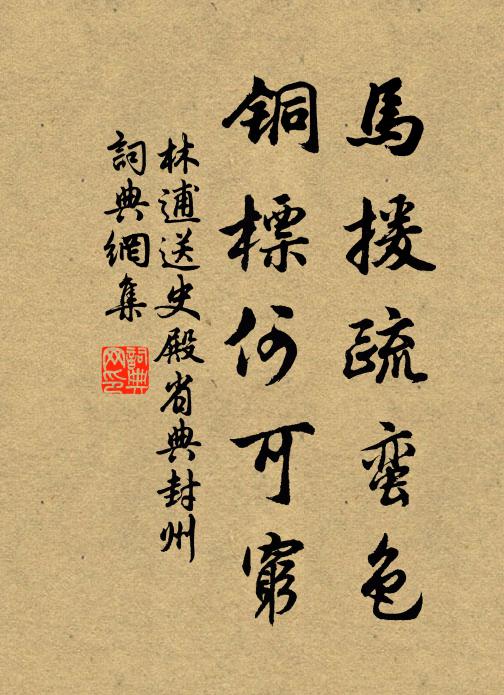 馬援疏蛮色
銅標何可窮
林逋送史殿省典封州
詞典網集
詞典网印